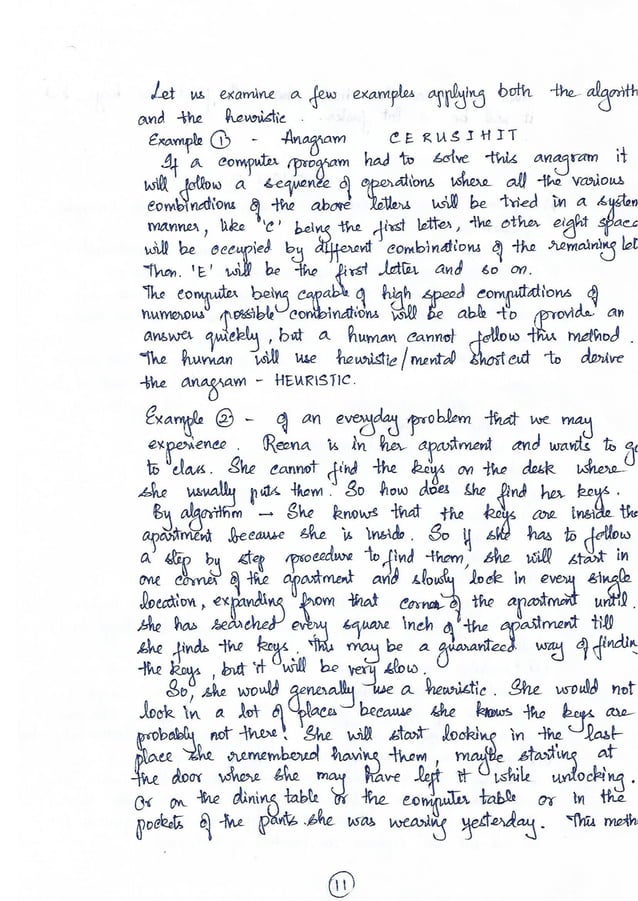 Let us examine a few examples applying both the algorith
and the heuristic.
Example ① - Anagram CERUSIHIT
If a computer program had to solve this anagram it
will follow a sequence of operations where all the various
combinations of the above letters will be tried in a system
manner, like 'C' being the first letter, the other eight space
will be occupied by different combinations of the remaining let
Then. 'E' will be the first letter and so on.
The computer being capable of high speed computations of
numerous possible combinations will be able to provide an
answer quickly, but a human cannot follow this method.
The human will use heuristic/mental shortcut to derive
the anagram - HEURISTIC.
Example ② - of an everyday problem that we may
experience. Reena is in her apartment and wants to go
to class. She cannot find the keys on the desk where
she usually puts them. So how does she find her keys.
By algorithm → She knows that the keys are inside the
apartment because she is inside. So if she has to follow
a step by step procedure to find them, she will start in
one corner of the apartment and slowly look in every single
location, expanding from that corner of the apartment until
she has searched every square inch of the apartment till
she finds the keys. This may be a guaranteed way of finding
the keys, but it will be very slow.
So, she would generally use a heuristic. She would not
look in a lot of places because she knows the keys are
probably not there. She will start looking in the last
place she remembered having them, maybe starting at
the door where she may have left it while unlocking.
Or on the dining table or the computer table or in the
pockets of the pants she was wearing yesterday. This meth
11